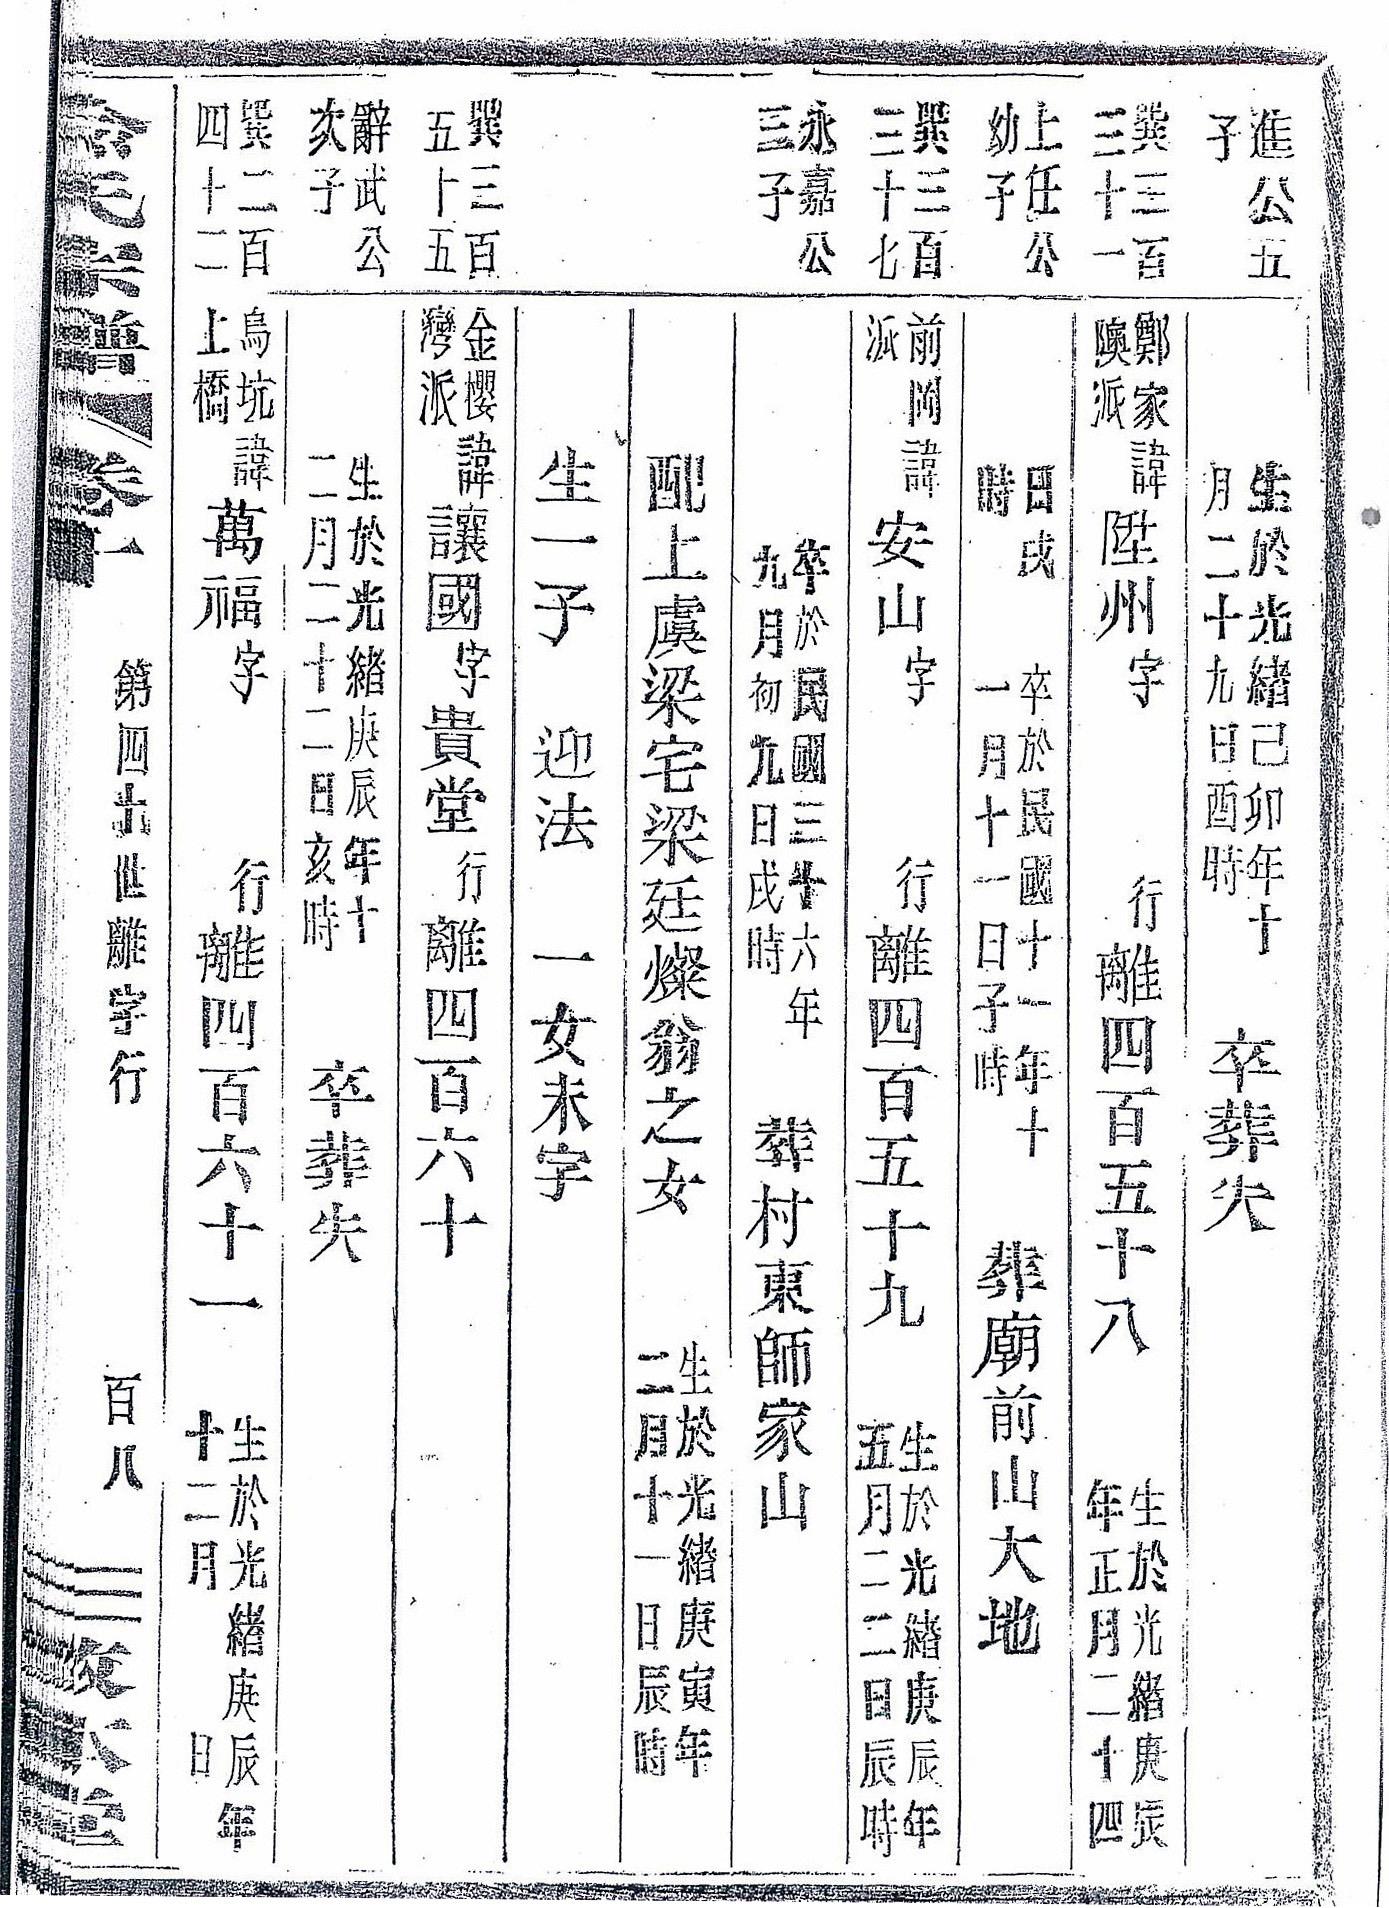 進公五
子
生於光緒己卯年十
月二十九日酉時
卒葬失
巽三百
三十一
鄭家
隩派
諱陞州字
行離四百五十八
生於光緒庚辰
年正月二十四
上任公
幼子
日戌
時
卒於民國十一年十
一月十一日子時
葬廟前山大地
巽三百
三十七
前岡
派
諱安山字
行離四百五十九
生於光緒庚辰年
五月二二日辰時
永嘉公
三子
卒於民國三十六年
九月初九日戌時
葬村東師家山
配上虞梁宅梁廷燦翁之女
生於光緒庚寅年
二月十一日辰時
生一子 迎法 一女未字
巽三百
五十五
金櫻
灣派
諱讓國字貴堂行離四百六十
辭武公
次子
生於光緒庚辰年十
二月二十二日亥時
卒葬失
巽二百
四十二
烏坑
上橋
諱萬福字
行離四百六十一
生於光緒庚辰年
十二月 日
卷一
第四 世離字行
百八